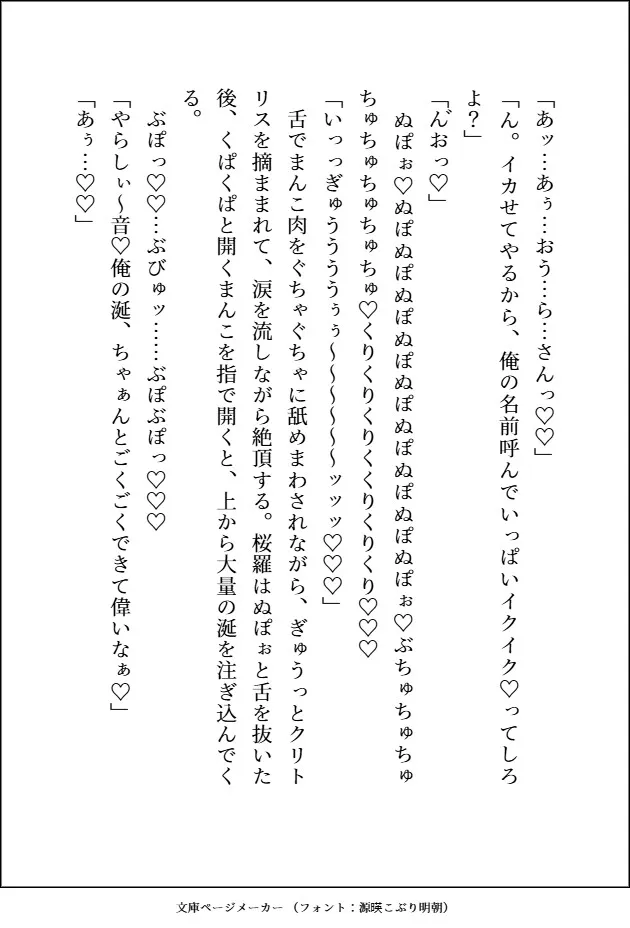 「あッ…あぅ…おう…ら…さんっ♡♡」
「ん。イカせてやるから、俺の名前呼んでいっぱいイクイク♡ってしろ
よ？」
「ん゙おっ♡」
ぬぽぉ♡ぬぽぬぽぬぽぬぽぬぽぬぽぬぽぬぽぬぽぉ♡ぶちゅちゅちゅ
ちゅちゅちゅちゅちゅ♡くりくりくりくくりくりくり♡♡♡
「いっっぎゅうううぅぅ～～～～～～ッッッ♡♡♡」
舌でまんこ肉をぐちゃぐちゃに舐めまわされながら、ぎゅうっとクリト
リスを摘ままれて、涙を流しながら絶頂する。桜羅はぬぽぉと舌を抜いた
後、くぱくぱと開くまんこを指で開くと、上から大量の涎を注ぎ込んでく
る。
ぶぽっ♡♡…ぶびゅッ……ぶぽぶぽっ♡♡♡
「やらしぃ～音♡俺の涎、ちゃぁんとごくごくできて偉いなぁ♡」
「あぅ…♡♡」
文庫ページメーカー（フォント：源暎こぶり明朝）